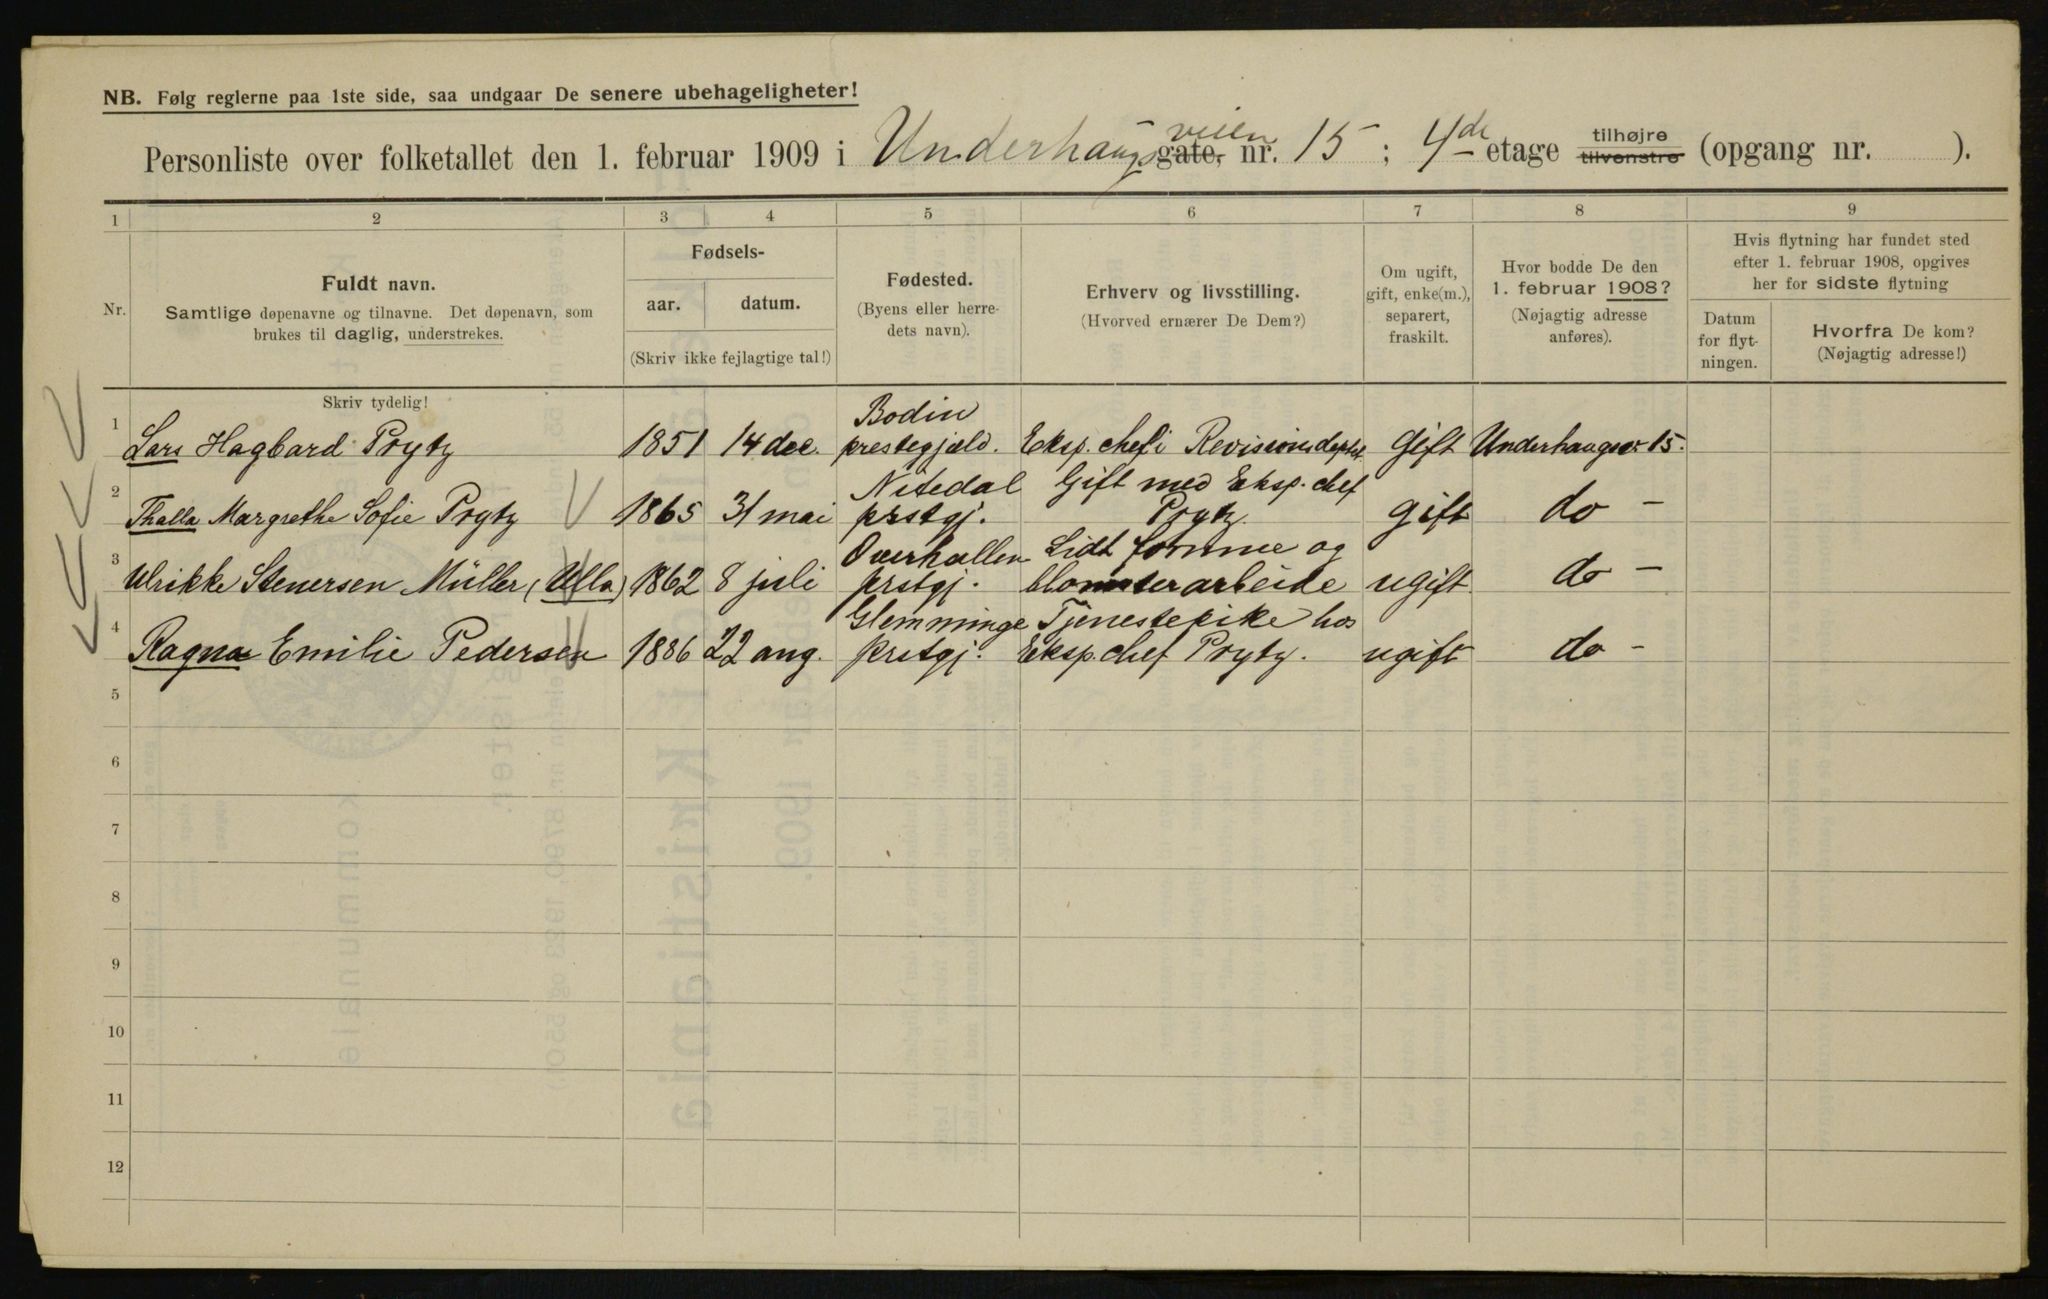 NB. Følg reglerne paa 1ste side, saa undgaar De senere ubehageligheter!
Personliste over folketallet den 1. februar 1909 i Underhaugs veien gate, nr. 15 ; 4de etage tilhøjre tilvenstre (opgang nr. ).
1 2 3 4 5 6 7 8 9
Nr.
Fuldt navn.
Samtlige døpenavne og tilnavne. Det døpenavn, som
brukes til daglig, understrekes.
Fødsels-
aar. datum.
(Skriv ikke fejlagtige tal!)
Fødested.
(Byens eller herre-
dets navn).
Erhverv og livsstilling.
(Hvorved ernærer De Dem?)
Om ugift,
gift, enke(m.),
separert,
fraskilt.
Hvor bodde De den
1. februar 1908?
(Nøjagtig adresse
anføres).
Hvis flytning har fundet sted
efter 1. februar 1908, opgives
her for sidste flytning
Datum
for flyt-
ningen.
Hvorfra De kom?
(Nøjagtig adresse!)
Skriv tydelig!
1 Bodin
Lars Hagbard Prytz 1851 14 dec. prestegjæld. Eksp. chef i Revisionsdeptet Gift Underhaugsv. 15.
2 Nitedal Gift med Eksp. chef
Thalla Margrethe Sofie Prytz 1865 31 mai prstgj. Prytz gift do –
3 Overhallen Lidt sømme og
Ulrikke Stenersen Müller (Ulla) 1862 8 juli prstgj. blomsterarbeide ugift do –
4 Glemminge Tjenestepike hos
Ragna Emilie Pedersen 1886 22 aug. prstgj. Eksp. chef Prytz. ugift do –
5
6
7
8
9
10
11
12